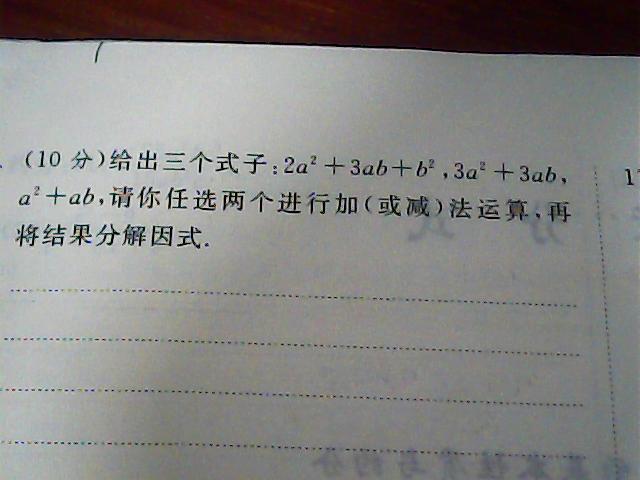 (10 分)给出三个式子:2a²+3ab+b²,3a²+3ab,
a²+ab,请你任选两个进行加(或减)法运算,再
将结果分解因式.